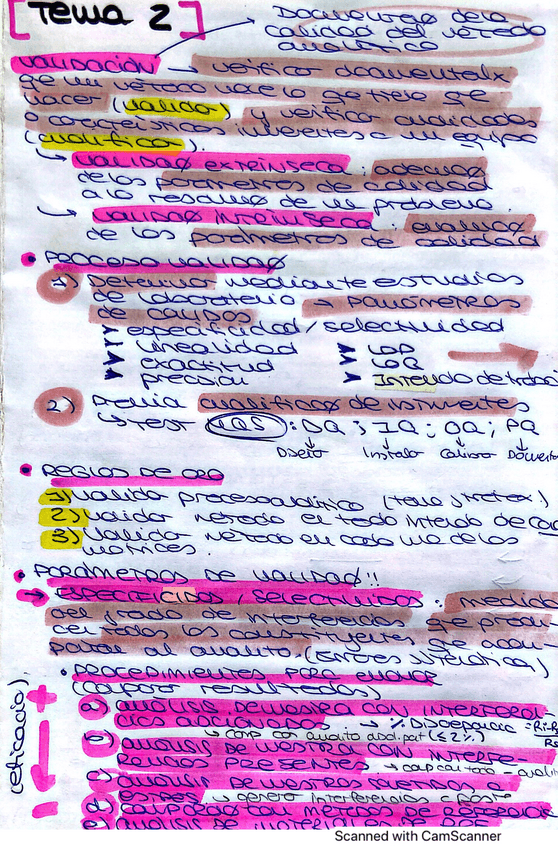 [Tema 2]
Documentaø de la
calidad del método
analítico
VALIDACIÓN → verificar documentalx
que un método hace lo que tiene que
hacer (validar) y verificar cualidades
o características inherentes a un equipo
(cualificar).
↳ VALIDAØ EXTRÍNSECA : adecuaø
de los parámetros de calidad
a la resoluø de un problema.
↳ VALIDAØ INTRÍNSECA : evaluaø
de los parámetros de calidad
• PROCESO VALIDAØ
1) Determinar mediante estudios
de laboratorio → PARÁMETROS
DE CALIDAD
especificidad / selectividad
linealidad
exactitud
precisión
LOD
LOQ
Intervalo de trabajo
2) Previa cualificaØ de instrumentos
↳ TEST 4QS : DQ ; IQ ; OQ ; PQ
Diseño Instalar Calibrar
• REGLAS DE ORO
1) Validar proceso analítico (toma
2) Validar método en todo intervalo de
3) Validar método en cada una de las
matrices.
• PARÁMETROS DE VALIDAØ!!
→ ESPECIFICIDAD / SELECTIVIDAD : medida
del grado de interferencias que produ-
cen todos los constituyentes que acom-
pañan al analito. (Errores sistemáticos)
• PROCEDIMIENTOS PARA EVALUAR
(comparar resultados)
a) ANÁLISIS DE MUESTRA CON INTERFEREN-
CIAS ADICIONADAS → % Discrepancia
(≤ 2%)
b) ANÁLISIS DE MUESTRA CON INTERFE-
RENCIAS PRESENTES
c) ANÁLISIS DE MUESTRAS SOMETIDAS A
ESTRÉS ↳ genero interferencias a posta
d) COMPARAØ CON MÉTODOS DE REFERENCIA
e) ANÁLISIS DE MATERIALES DE REF.
Scanned with CamScanner